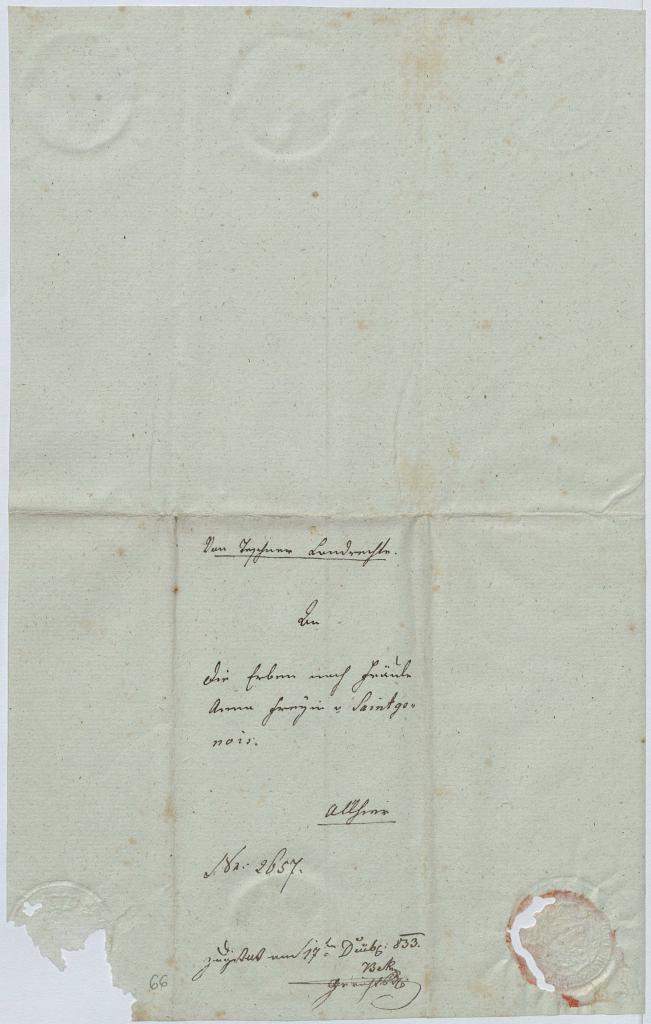 Von Teschner Landrechte.
An
die Erben nach Fräule
Anna Freyin v Saintge-
nois.
Allhier
Nr. 2657.
zugestellt am 17ten Dezb: 833.
66